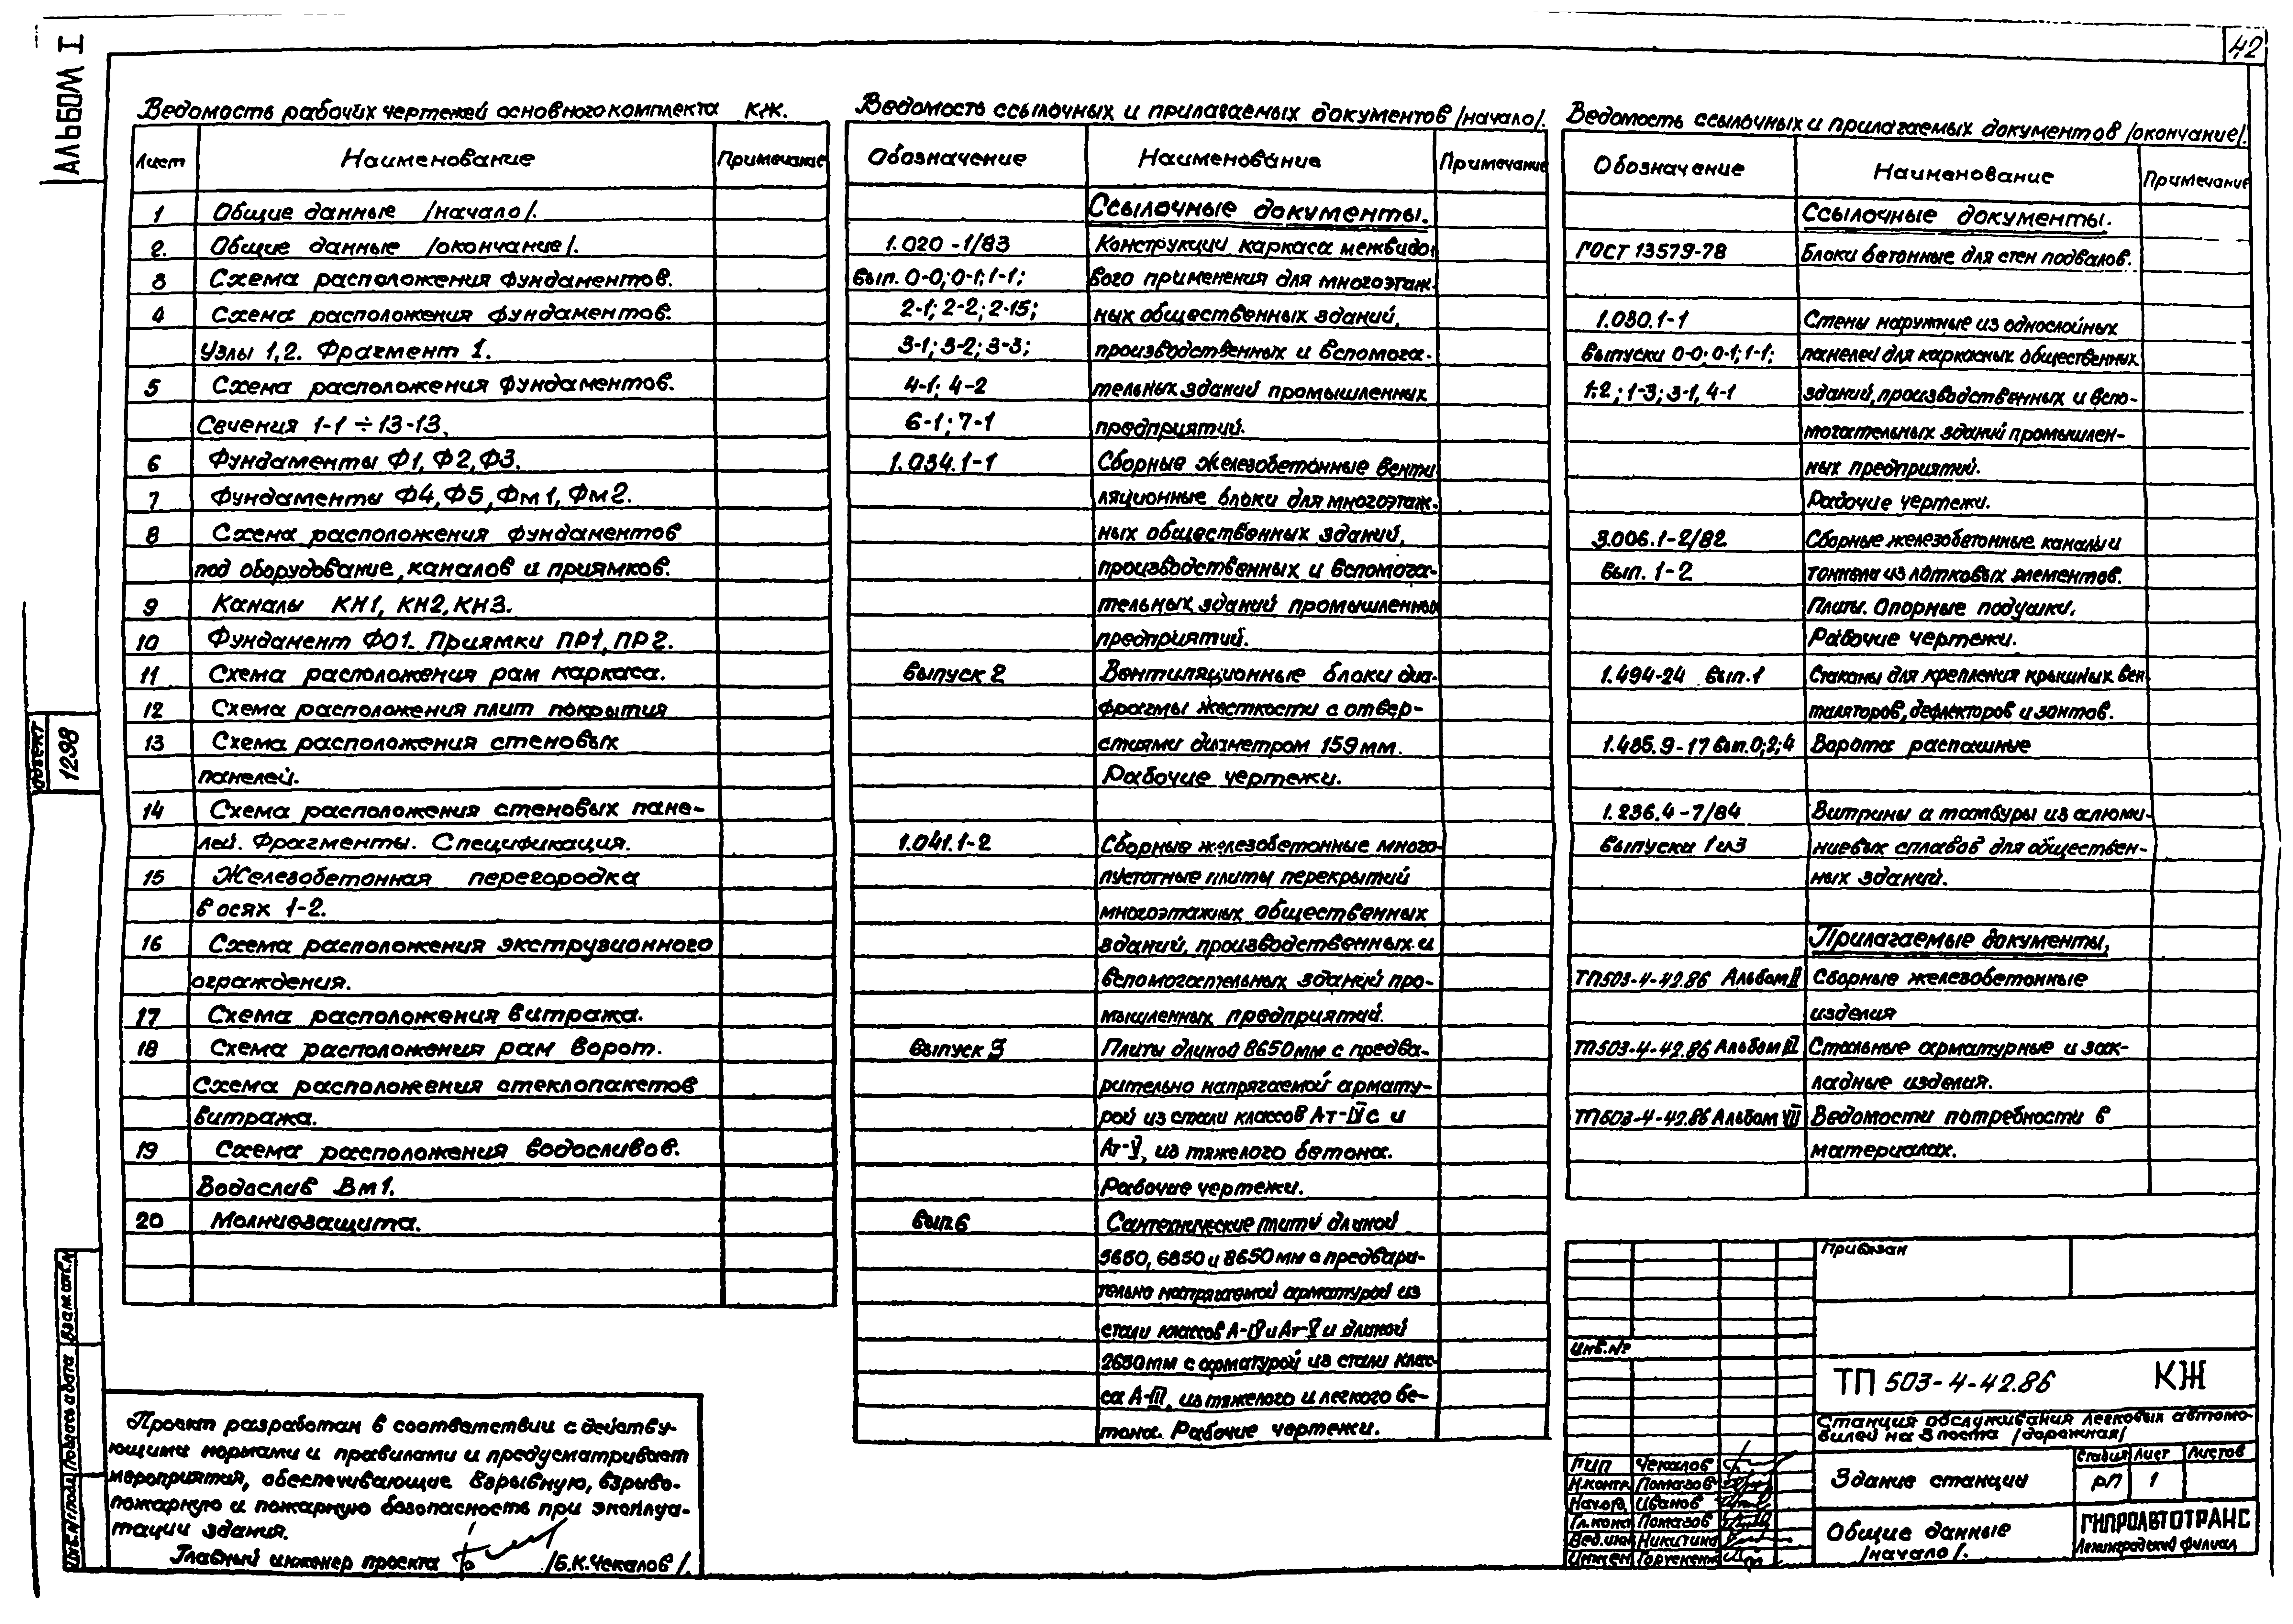 42
АЛЬБОМ I
Ведомость рабочих чертежей основного комплекта КЖ.
Лист Наименование Примечание
1 Общие данные /начало/.
2. Общие данные /окончание/.
3 Схема расположения фундаментов.
4 Схема расположения фундаментов.
Узлы 1,2. Фрагмент 1.
5 Схема расположения фундаментов.
Сечения 1-1 ÷ 13-13.
6 Фундаменты Ф1, Ф2, Ф3.
7 Фундаменты Ф4, Ф5, Фм1, Фм2.
8 Схема расположения фундаментов
под оборудование, каналов и приямков.
9 Каналы КН1, КН2, КН3.
10 Фундамент ФО1. Приямки ПР1, ПР2.
11 Схема расположения рам каркаса.
12 Схема расположения плит покрытия
13 Схема расположения стеновых
панелей.
14 Схема расположения стеновых пане-
лей. Фрагменты. Спецификация.
15 Железобетонная перегородка
в осях 1-2.
16 Схема расположения экструзионного
ограждения.
17 Схема расположения витража.
18 Схема расположения рам ворот.
Схема расположения стеклопакетов
витража.
19 Схема расположения водосливов.
Водослив Вм1.
20 Молниезащита.
Ведомость ссылочных и прилагаемых документов /начало/.
Обозначение Наименование Примечание
Ссылочные документы.
1.020-1/83 Конструкции каркаса межвидо-
вып. 0-0; 0-1; 1-1; вого применения для многоэтаж-
2-1; 2-2; 2-15; ных общественных зданий,
3-1; 3-2; 3-3; производственных и вспомога-
4-1; 4-2 тельных зданий промышленных
6-1; 7-1 предприятий.
1.034.1-1 Сборные железобетонные венти
ляционные блоки для многоэтаж-
ных общественных зданий,
производственных и вспомога-
тельных зданий промышленных
предприятий.
Выпуск 2 Вентиляционные блоки диа-
фрагмы жесткости с отвер-
стиями диаметром 159мм.
Рабочие чертежи.
1.041.1-2 Сборные железобетонные много-
пустотные плиты перекрытий
многоэтажных общественных
зданий, производственных и
вспомогательных зданий про-
мышленных предприятий.
Выпуск 3 Плиты длиной 8650мм с предва-
рительно напрягаемой армату-
рой из стали классов Ат-IVс и
Ат-V, из тяжелого бетона.
Рабочие чертежи.
Вып.6 Сантехнические плиты длиной
5650, 6850 и 8650 мм с предвари-
тельно напрягаемой арматурой из
стали классов А-IV и Ат-V и длиной
2650мм с арматурой из стали клас-
са А-III, из тяжелого и легкого бе-
тона. Рабочие чертежи.
Ведомость ссылочных и прилагаемых документов /окончание/.
Обозначение Наименование Примечание
Ссылочные документы.
ГОСТ 13579-78 Блоки бетонные для стен подвалов.
1.030.1-1 Стены наружные из однослойных
Выпуски 0-0; 0-1; 1-1; панелей для каркасных общественных
1-2; 1-3; 3-1, 4-1 зданий, производственных и вспо-
могательных зданий промышлен-
ных предприятий.
Рабочие чертежи.
3.006.1-2/82 Сборные железобетонные каналы и
Вып. 1-2 тоннели из лотковых элементов.
Плиты. Опорные подушки.
Рабочие чертежи.
1.494-24 вып.1 Стаканы для крепления крышных вен
тиляторов, дефлекторов и зонтов.
1.435.9-17 вып. 0; 2; 4 Ворота распашные
1.236.4-7/84 Витрины и тамбуры из алюми-
Выпуски 1 и 3 ниевых сплавов для обществен-
ных зданий.
Прилагаемые документы,
ТП503-4-42.86 Альбом II Сборные железобетонные
изделия
ТП503-4-42.86 Альбом Стальные арматурные и зак-
ладные изделия.
ТП503-4-42.86 Альбом VIII Ведомости потребности в
материалах.
Объект
1298
Взам.инв.№
Подпись и дата
Инв.№ подл.
Проект разработан в соответствии с действу-
ющими нормами и правилами и предусматривает
мероприятия, обеспечивающие взрывную, взрыво-
пожарную и пожарную безопасность при эксплуа-
тации здания.
Главный инженер проекта /Б.К.Чекалов/.
Привязан
Инв.№
ТП 503-4-42.86 КЖ
Станция обслуживания легковых автомо-
билей на 3 поста /дорожная/
ГИП Чекалов
Н.контр. Помазов
Нач.отд. Иванов
Гл.конс Помазов
Вед.инж Никитина
Инжен
Здание станции
Стадия Лист Листов
РП 1
Общие данные
/начало/.
ГИПРОАВТОТРАНС
Ленинградский филиал